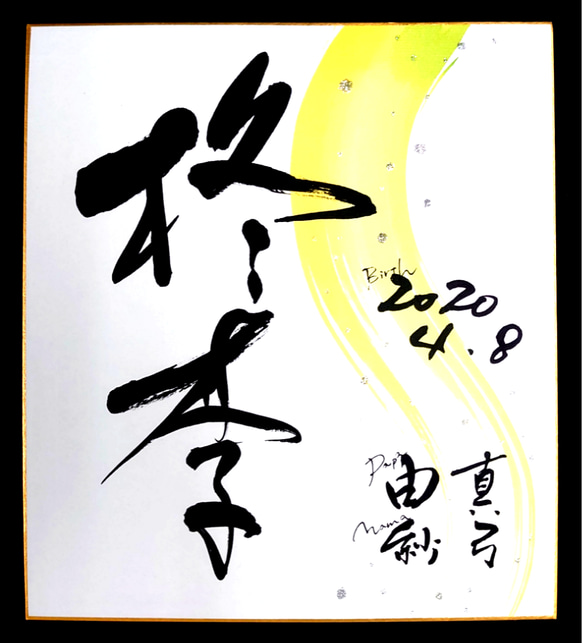 柊李
Birth
2020
4.8
Papa 由真
Mama 紗弓